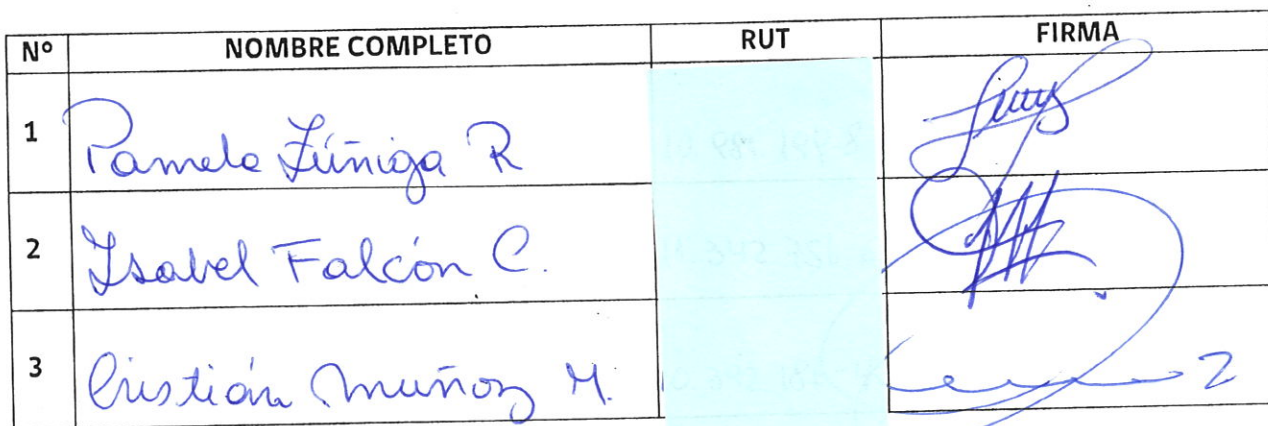 Nº NOMBRE COMPLETO RUT FIRMA
1 Pamela Zúñiga R
2 Isabel Falcón C.
3 Cristián Muñoz M.